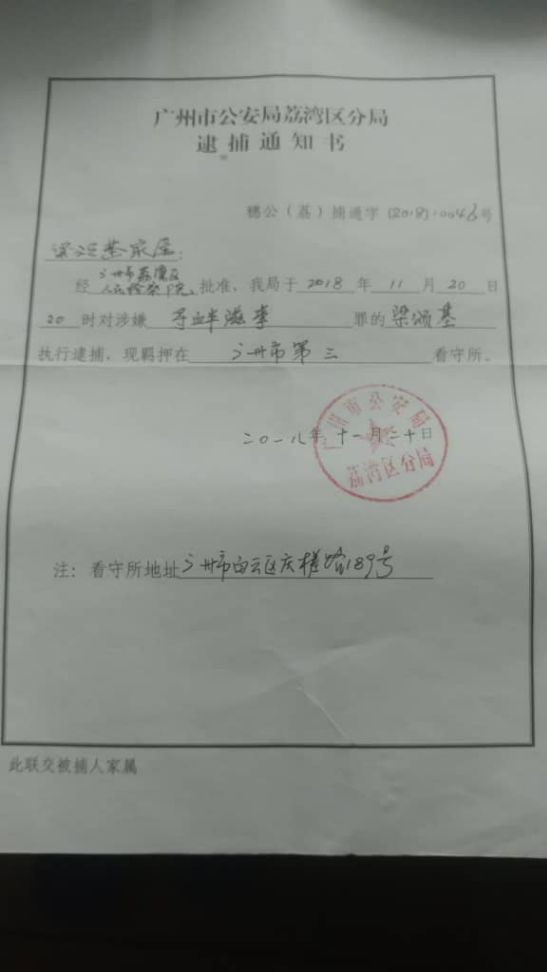 广州市公安局荔湾区分局
逮捕通知书
穗公（荔）捕通字（2018）0046号
梁颂基家属：
经广州市荔湾区人民检察院批准，我局于2018年11月20日
20时对涉嫌寻衅滋事罪的梁颂基
执行逮捕，现羁押在广州市第三看守所。
二〇一八年十一月二十日
广州市公安局
荔湾区分局
注：看守所地址广州市白云区庆槎路189号
此联交被捕人家属